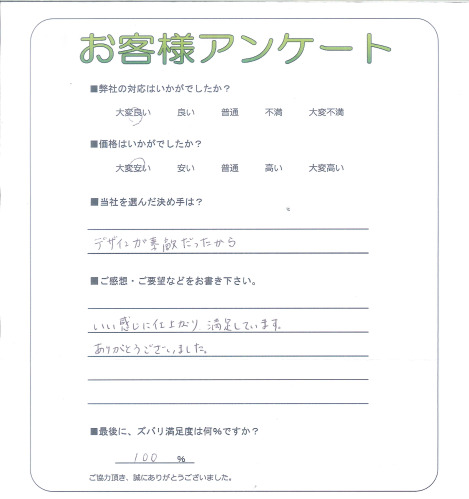 お客様アンケート
■弊社の対応はいかがでしたか？
大変良い 良い 普通 不満 大変不満
■価格はいかがでしたか？
大変安い 安い 普通 高い 大変高い
■当社を選んだ決め手は？
デザインが素敵だったから
■ご感想・ご要望などをお書き下さい。
いい感じに仕上がり 満足しています。
ありがとうございました。
■最後に、ズバリ満足度は何％ですか？
100 ％
ご協力頂き、誠にありがとうございました。